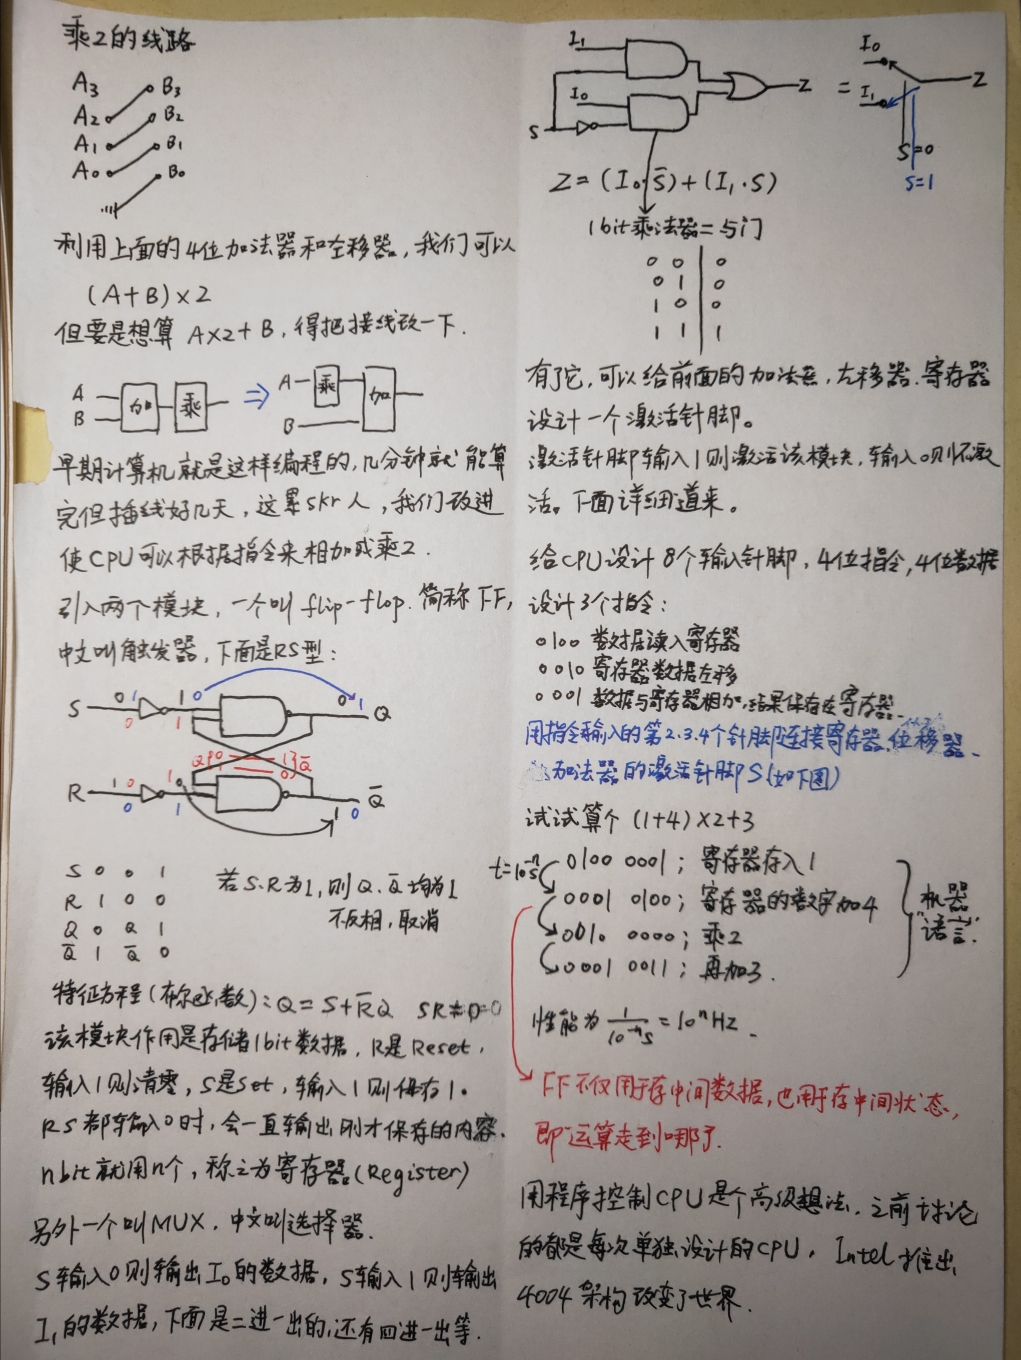 乘2的线路
A₃ B₃
A₂ B₂
A₁ B₁
A₀ B₀
利用上面的4位加法器和左移器，我们可以
(A+B)×2
但要是想算 A×2+B，得把接线改一下.
A B 加 乘 ⇒ A 乘 B 加
早期计算机就是这样编程的，几分钟就能算
完但插线好几天，这累skr人，我们改进
使CPU可以根据指令来相加或乘2.
引入两个模块，一个叫flip-flop.简称FF，
中文叫触发器，下面是RS型：
S 0 1 1 0 0 1 Q
0 1
Q 1 0 1 0 Q̄
R 1 0 1 0 Q̄
0 1 1 0
S 0 0 1
R 1 0 0
Q 0 Q 1
Q̄ 1 Q̄ 0
若S.R为1，则Q、Q̄均为1
不反相，取消
特征方程(布尔代数)：Q=S+R̄Q SR=0
该模块作用是存储1bit数据，R是Reset，
输入1则清零，S是Set，输入1则保存1。
RS都输入0时，会一直输出刚才保存的内容.
nbit就用n个，称之为寄存器(Register)
另外一个叫MUX.中文叫选择器.
S输入0则输出I₀的数据，S输入1则输出
I₁的数据，下面是二进一出的，还有四进一出等.
I₁
I₀
S
Z = I₀ I₁ Z
S=0
S=1
Z=(I₀·S̄)+(I₁·S)
1bit乘法器=与门
0 0 0
0 1 0
1 0 0
1 1 1
有了它，可以给前面的加法器，左移器.寄存器
设计一个激活针脚。
激活针脚输入1则激活该模块，输入0则不激
活。下面详细道来。
给CPU设计8个输入针脚，4位指令，4位数据
设计3个指令：
0100 数据读入寄存器
0010 寄存器数据左移
0001 数据与寄存器相加，结果保存在寄存器.
用指令输入的第2.3.4个针脚连接寄存器.位移器、
加法器的激活针脚S(如下图)
试试算个 (1+4)×2+3
t=10⁻ⁿs 0100 0001；寄存器存入1
0001 0100；寄存器的数字加4
0010 0000；乘2
0001 0011；再加3.
机器
"语言".
性能为 1/10⁻ⁿs = 10ⁿHz.
FF不仅用于存中间数据，也用于存中间状态，
即运算走到哪了.
用程序控制CPU是个高级想法，之前讨论
的都是每次单独设计的CPU，Intel推出
4004架构改变了世界.